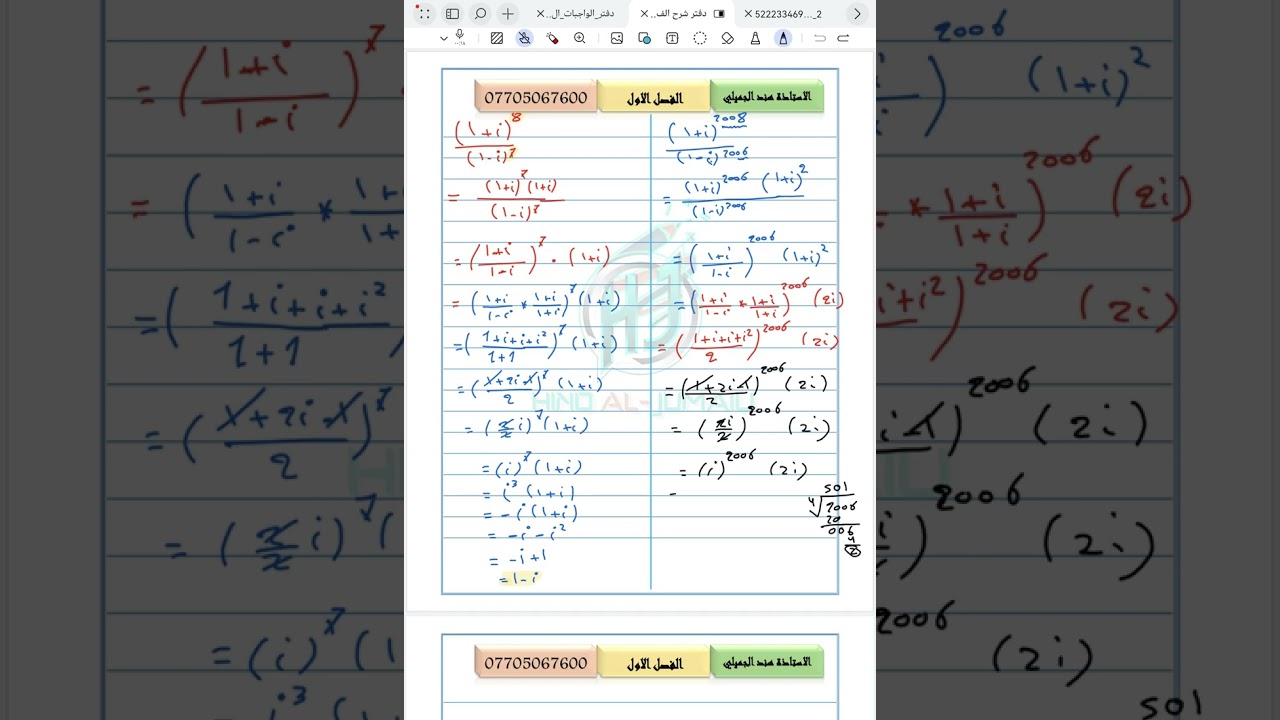 دفتر_الواجبات_ال...
دفتر شرح الف...
522233469..._2
07705067600 الفصل الاول الاستاذة هند الجميلي
(1+i)^8 / (1-i)^7
= (1+i)^7 (1+i) / (1-i)^7
= ((1+i)/(1-i))^7 · (1+i)
= ((1+i)/(1-i) * (1+i)/(1+i))^7 (1+i)
= ((1+i+i+i^2)/(1+1))^7 (1+i)
= ((1+2i-1)/2)^7 (1+i)
= (2/2 i)^7 (1+i)
= (i)^7 (1+i)
= i^3 (1+i)
= -i (1+i)
= -i - i^2
= -i+1
= 1-i
(1+i)^2008 / (1-i)^2006
= (1+i)^2006 (1+i)^2 / (1-i)^2006
= ((1+i)/(1-i))^2006 (1+i)^2
= ((1+i)/(1-i) * (1+i)/(1+i))^2006 (2i)
= ((1+i+i+i^2)/2)^2006 (2i)
= ((1+2i-1)/2)^2006 (2i)
= (2i/2)^2006 (2i)
= (i)^2006 (2i)
=
501
4 √2006
20
006
4
2
HIND AL-JUMAILI
07705067600 الفصل الاول الاستاذة هند الجميلي